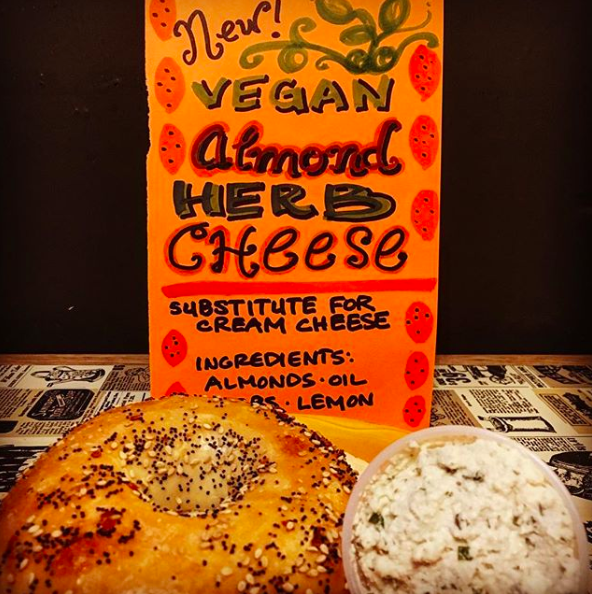 New!
VEGAN
Almond
HERB
CHEESE
SUBSTITUTE FOR
CREAM CHEESE
INGREDIENTS:
ALMONDS · OIL
· LEMON